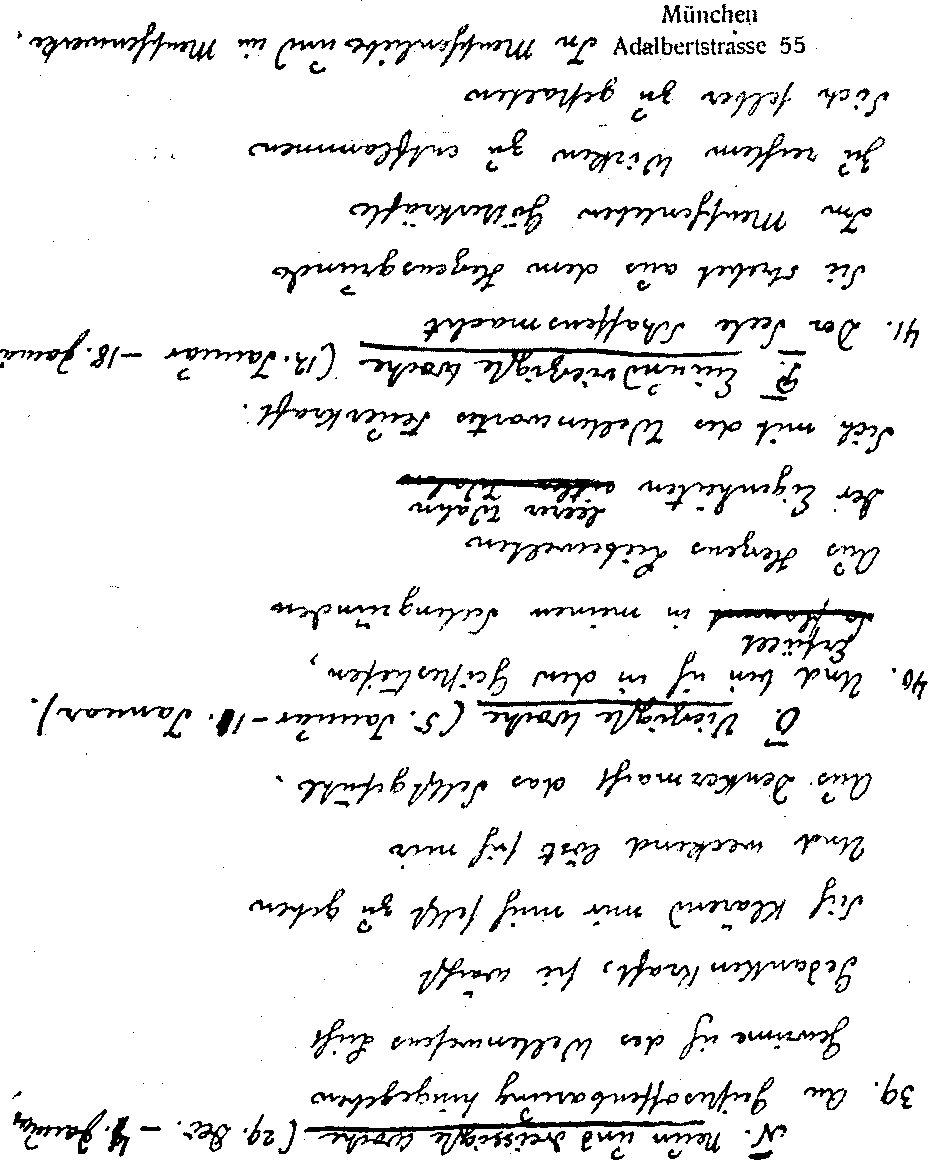 N̄. Neun und dreissigste Woche (29. Dez. – 4. Januar
39. An Geistesoffenbarung hingegeben
Gewinne ich des Weltenwesens Licht
Gedankenkraft, sie wächst
Sich klärend mir mich selbst zu geben
Und weckend löst sich mir
Aus Denkermacht das Selbstgefühl.
Ō. Vierzigste Woche (5. Januar – 11. Januar).
40. Und bin ich in den Geistestiefen,
Erfüllt
in meinen Seelengründen
Aus Herzens Liebewelten
leerer Wahn
Der Eigenheiten
Sich mit des Weltenwortes Feuerkraft.
P̄. Einundvierzigste Woche (12. Januar – 18. Janua
41. Der Seele Schaffensmacht
Sie strebet aus dem Herzensgrunde
Im Menschenleben Götterkräfte
Zu rechtem Wirken zu entflammen
Sich selber zu gestalten
In Menschenliebe und im Menschenwerke.
München
Adalbertstrasse 55